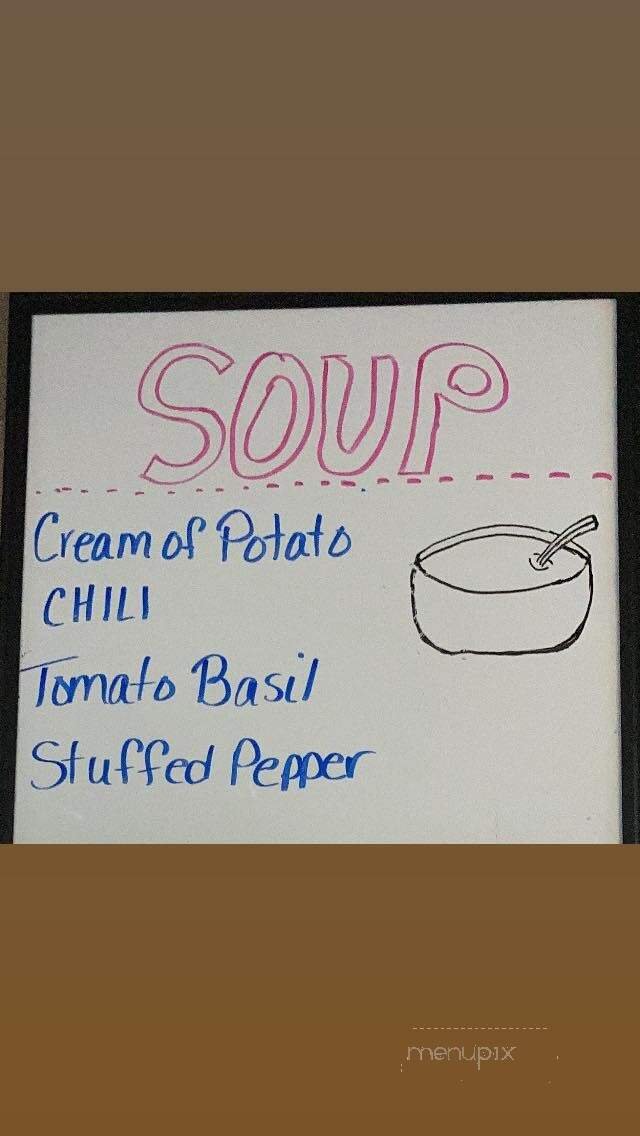 SOUP
Cream of Potato
CHILI
Tomato Basil
Stuffed Pepper
menupix